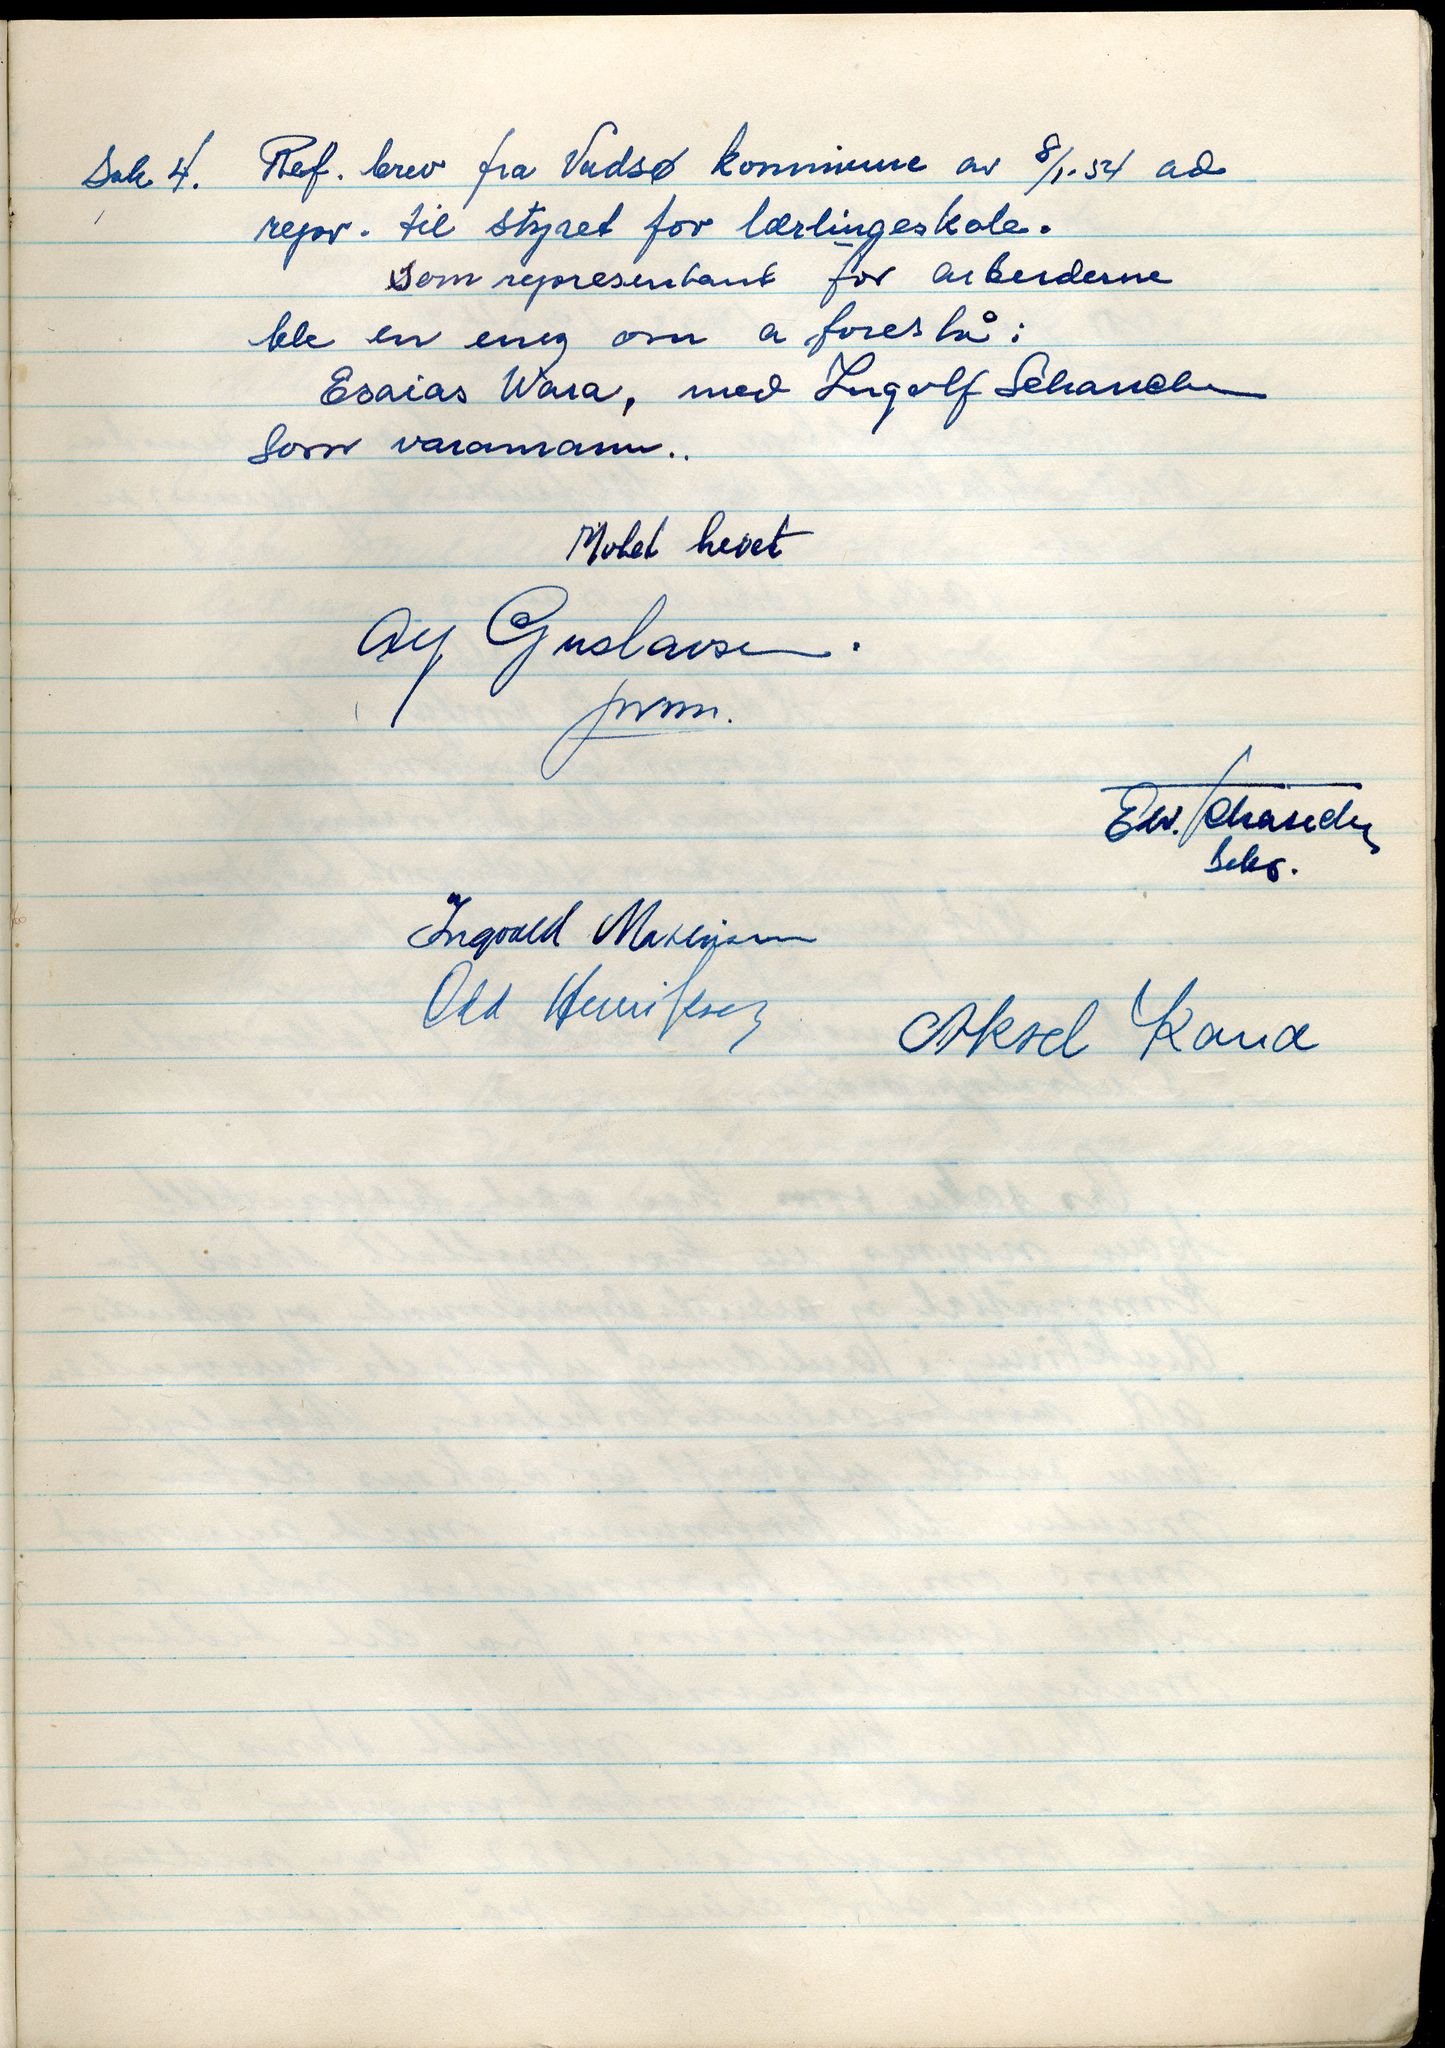 Sak 4. Ref. brev fra Vadsø kommune av 8/1-54 ad
repr. til styret for lærlingeskole.
Som representant for arbeiderne
ble en enig om a foreslå:
Esaias Wara, med Ingolf Schanche
som varamann..
Møtet hevet
Alf Gustavsen.
form.
Edv. Schanche
Sekr.
Ingvald Mathisen
Odd Henriksen
Aksel Kana